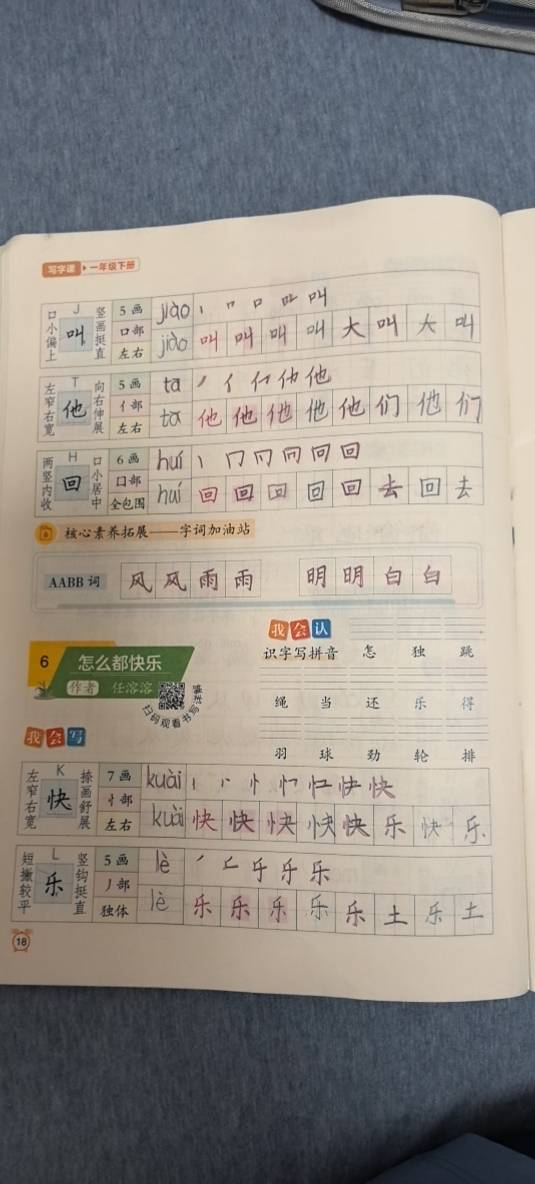 写字课 一年级下册
口小偏上 J 叫 竖画挺直 5画 jiào 丨 𠃍 口 叫 叫
口部 左右 jiào 叫 叫 叫 叫 大 叫 大 叫
左窄右宽 T 他 向右伸展 5画 tā 丿 亻 他 他
亻部 左右 tā 他 他 他 他 他 们 他 们
两竖内收 H 回 口小居中 6画 huí 丨 冂 回 回
囗部 全包围 huí 回 回 回 回 回 去 回 去
核心素养拓展——字词加油站
AABB 词 风 风 雨 雨 明 明 白 白
我会认
识字写拼音 怎 独 跳
绳 当 还 乐 得
羽 球 劲 轮 排
6 怎么都快乐
作者 任溶溶
扫码观看书写视频
我会写
左窄右宽 K 快 捺画舒展 7画 kuài 快 快
忄部 左右 kuài 快 快 快 快 快 乐 快 乐
短撇较平 L 乐 竖钩挺直 5画 lè 丿 乐 乐
丿部 独体 lè 乐 乐 乐 乐 乐 土 乐 土
18